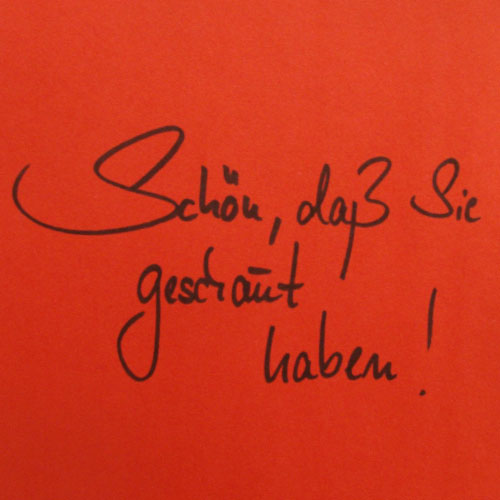 Schön, daß Sie
geschaut
haben!